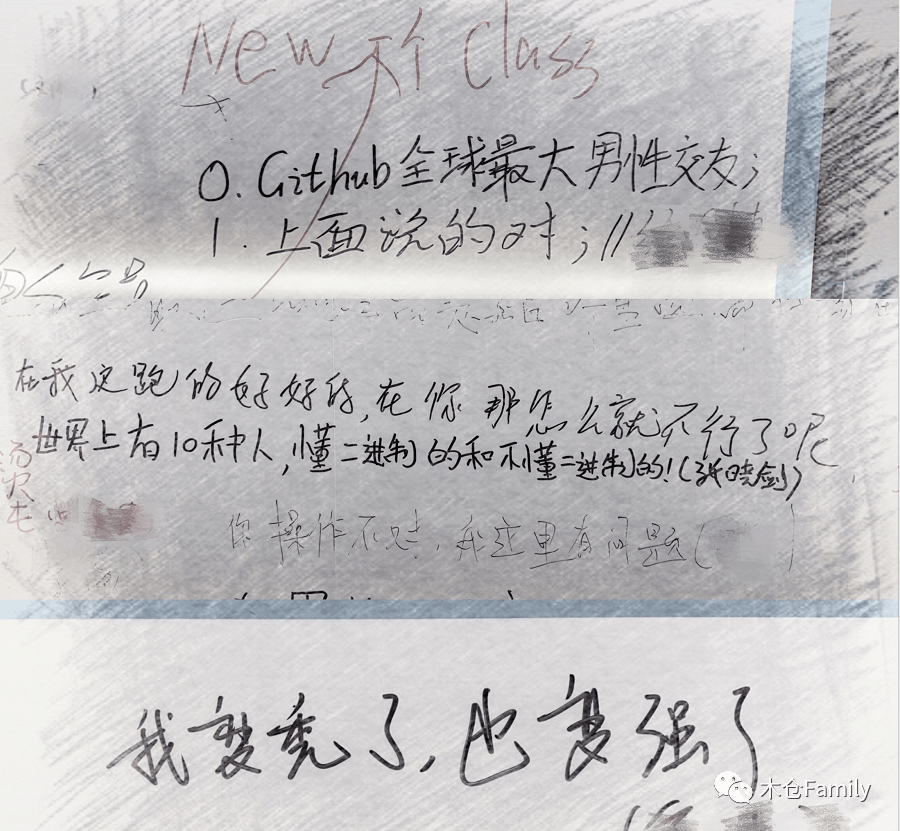 New 个 Class
0. Github全球最大男性交友;
1. 上面说的对;//
在我这跑的好好的,在你那怎么就不行了呢
世界上有10种人,懂二进制的和不懂二进制的!(张晓剑)
你操作不对,我这里有问题(
我变秃了,也变强了
木仓Family